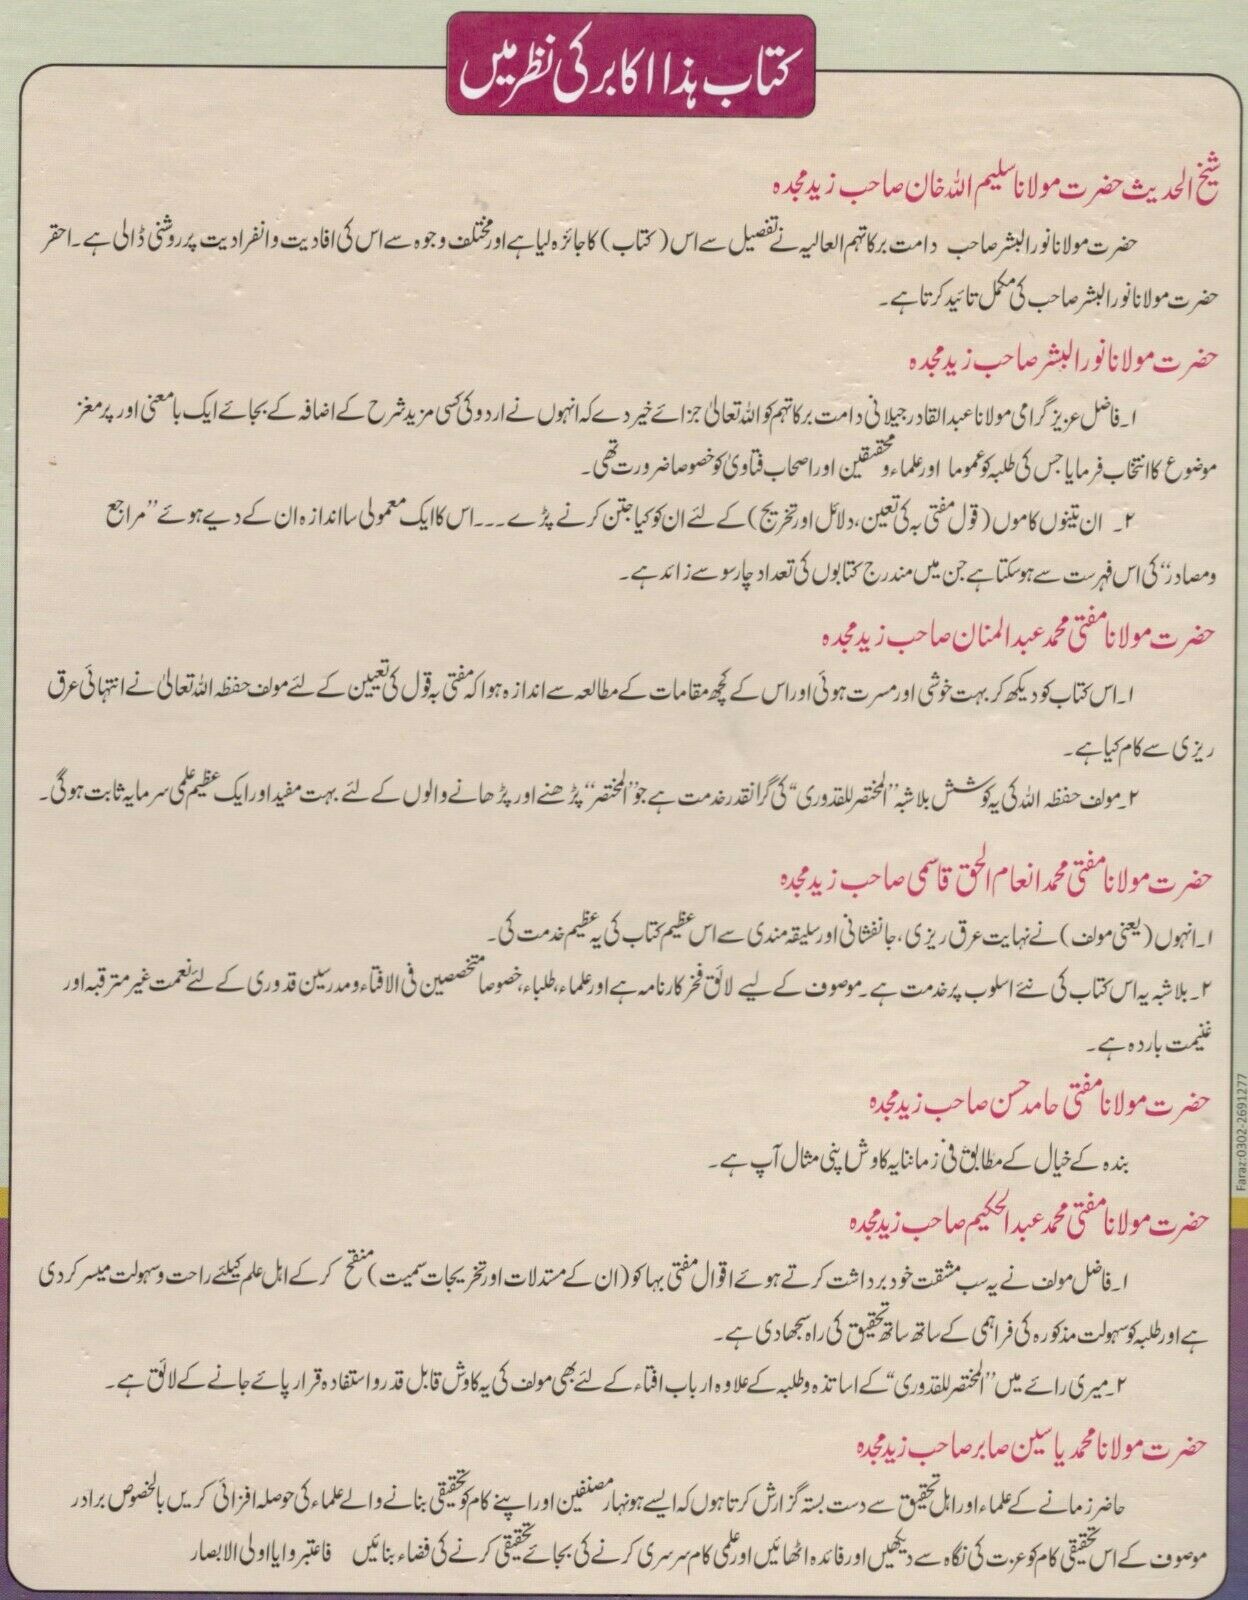 کتاب ہذا اکابر کی نظر میں
شیخ الحدیث حضرت مولانا سلیم اللہ خان صاحب زید مجدہ
حضرت مولانا نور البشر صاحب دامت برکاتہم العالیہ نے تفصیل سے اس (کتاب) کا جائزہ لیا ہے اور مختلف وجوہ سے اس کی افادیت و انفرادیت پر روشنی ڈالی ہے۔ احقر
حضرت مولانا نور البشر صاحب کی مکمل تائید کرتا ہے۔
حضرت مولانا نور البشر صاحب زید مجدہ
۱۔ فاضل عزیز گرامی مولانا عبد القادر جیلانی دامت برکاتہم کو اللہ تعالیٰ جزائے خیر دے کہ انہوں نے اردو کی کسی مزید شرح کے اضافہ کے بجائے ایک با معنی اور پر مغز
موضوع کا انتخاب فرمایا جس کی طلبہ کو عموما اور علماء و محققین اور اصحاب فتاویٰ کو خصوصا ضرورت تھی۔
۲۔ ان تینوں کاموں (قول مفتی بہ کی تعین، دلائل اور تخریج) کے لئے ان کو کیا جتن کرنے پڑے۔۔۔ اس کا ایک معمولی سا اندازہ ان کے دیے ہوئے ”مراجع
و مصادر“ کی اس فہرست سے ہو سکتا ہے جن میں مندرج کتابوں کی تعداد چار سو سے زائد ہے۔
حضرت مولانا مفتی محمد عبد المنان صاحب زید مجدہ
۱۔ اس کتاب کو دیکھ کر بہت خوشی اور مسرت ہوئی اور اس کے کچھ مقامات کے مطالعہ سے اندازہ ہوا کہ مفتی بہ قول کی تعیین کے لئے مولف حفظہ اللہ تعالیٰ نے انتہائی عرق
ریزی سے کام کیا ہے۔
۲۔ مولف حفظہ اللہ کی یہ کوشش بلا شبہ ”المختصر للقدوری“ کی گرانقدر خدمت ہے جو ”المختصر“ پڑھنے اور پڑھانے والوں کے لئے بہت مفید اور ایک عظیم علمی سرمایہ ثابت ہوگی۔
حضرت مولانا مفتی محمد انعام الحق قاسمی صاحب زید مجدہ
۱۔ انہوں (یعنی مولف) نے نہایت عرق ریزی، جانفشانی اور سلیقہ مندی سے اس عظیم کتاب کی یہ عظیم خدمت کی۔
۲۔ بلا شبہ یہ اس کتاب کی نئے اسلوب پر خدمت ہے۔ موصوف کے لیے لائق فخر کارنامہ ہے اور علماء، طلباء، خصوصا متخصصین فی الافتاء و مدرسین قدوری کے لئے نعمت غیر مترقبہ اور
غنیمت باردہ ہے۔
حضرت مولانا مفتی حامد حسن صاحب زید مجدہ
بندہ کے خیال کے مطابق فی زماننا یہ کاوش اپنی مثال آپ ہے۔
حضرت مولانا مفتی محمد عبد الحکیم صاحب زید مجدہ
۱۔ فاضل مولف نے یہ سب مشقت خود برداشت کرتے ہوئے اقوال مفتی بہا کو (ان کے مستدلات اور تخریجات سمیت) منقح کر کے اہل علم کیلئے راحت و سہولت میسر کر دی
ہے اور طلبہ کو سہولت مذکورہ کی فراہمی کے ساتھ ساتھ تحقیق کی راہ سجھا دی ہے۔
۲۔ میری رائے میں ”المختصر للقدوری“ کے اساتذہ و طلبہ کے علاوہ ارباب افتاء کے لئے بھی مولف کی یہ کاوش قابل قدر و استفادہ قرار پائے جانے کے لائق ہے۔
حضرت مولانا محمد یاسین صابر صاحب زید مجدہ
حاضر زمانے کے علماء اور اہل تحقیق سے دست بستہ گزارش کرتا ہوں کہ ایسے ہونہار مصنفین اور اپنے کام کو تحقیقی بنانے والے علماء کی حوصلہ افزائی کریں بالخصوص برادر
موصوف کے اس تحقیقی کام کو عزت کی نگاہ سے دیکھیں اور فائدہ اٹھائیں اور علمی کام سرسری کرنے کی بجائے تحقیقی کرنے کی فضاء بنائیں فاعتبروا یا اولی الابصار
Faraz:0302-2691277